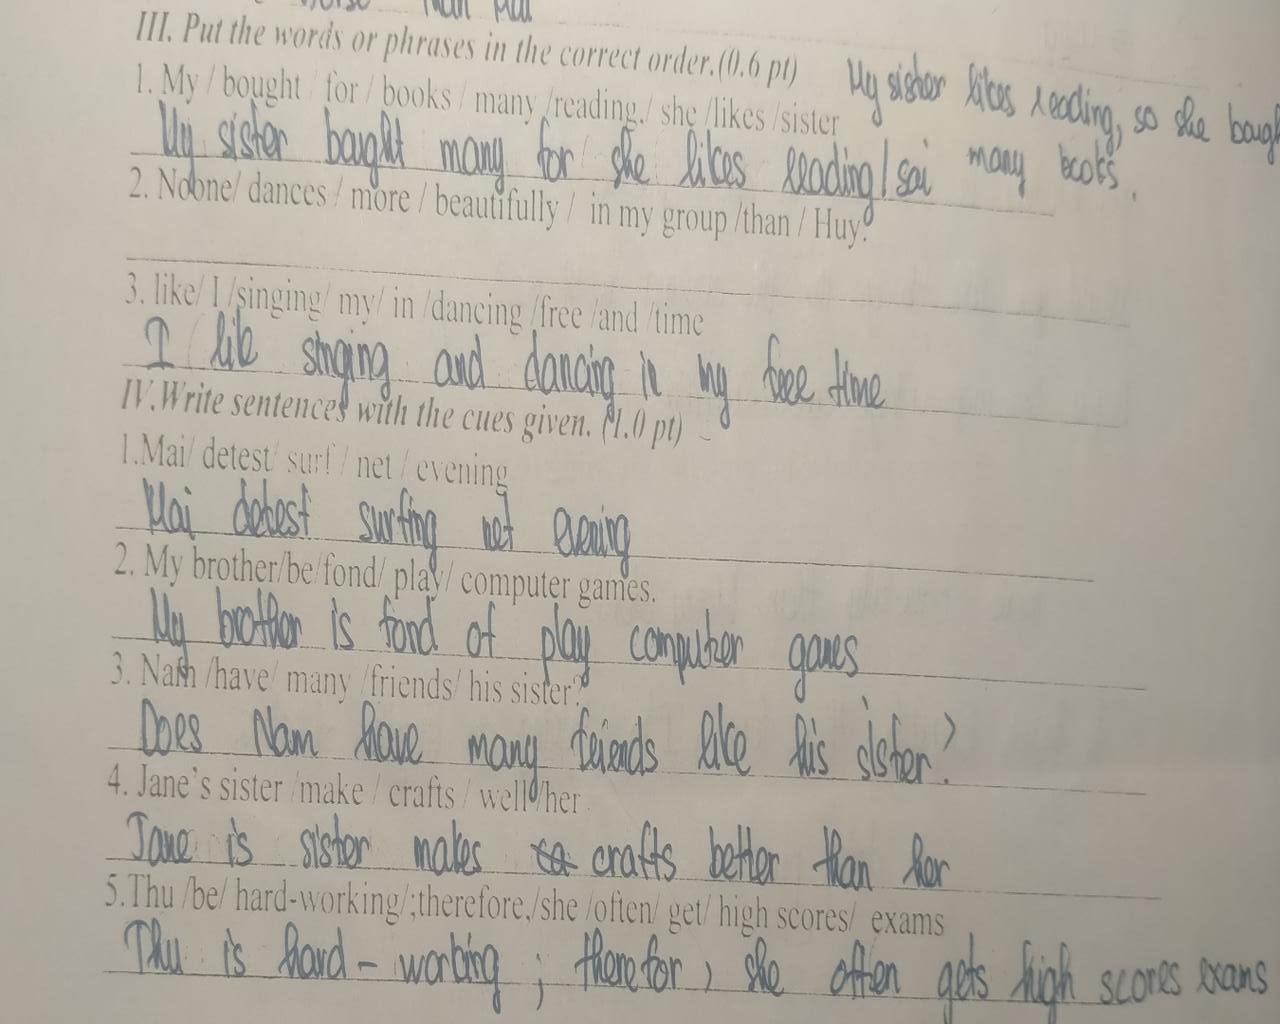 III. Put the words or phrases in the correct order.(0.6 pt)
My sister likes reading, so she bough
many books.
1. My / bought / for / books / many /reading./ she /likes /sister
My sister bought many for she likes reading / sai
2. Noone/ dances / more / beautifully / in my group /than / Huy.
3. like/ I /singing/ my/ in /dancing /free /and /time
I like singing and dancing in my free time
IV.Write sentences with the cues given. (1.0 pt)
1.Mai/ detest/ surf / net / evening
Mai detest surfing net evening
2. My brother/be/fond/ play/ computer games.
My brother is fond of play computer games
3. Nam /have/ many /friends/ his sister?
Does Nam have many friends like his sister?
4. Jane's sister /make / crafts / well /her
Jane is sister makes crafts better than her
5.Thu /be/ hard-working/;therefore,/she /often/ get/ high scores/ exams
Thu is hard - working ; therefor , she often gets high scores exams